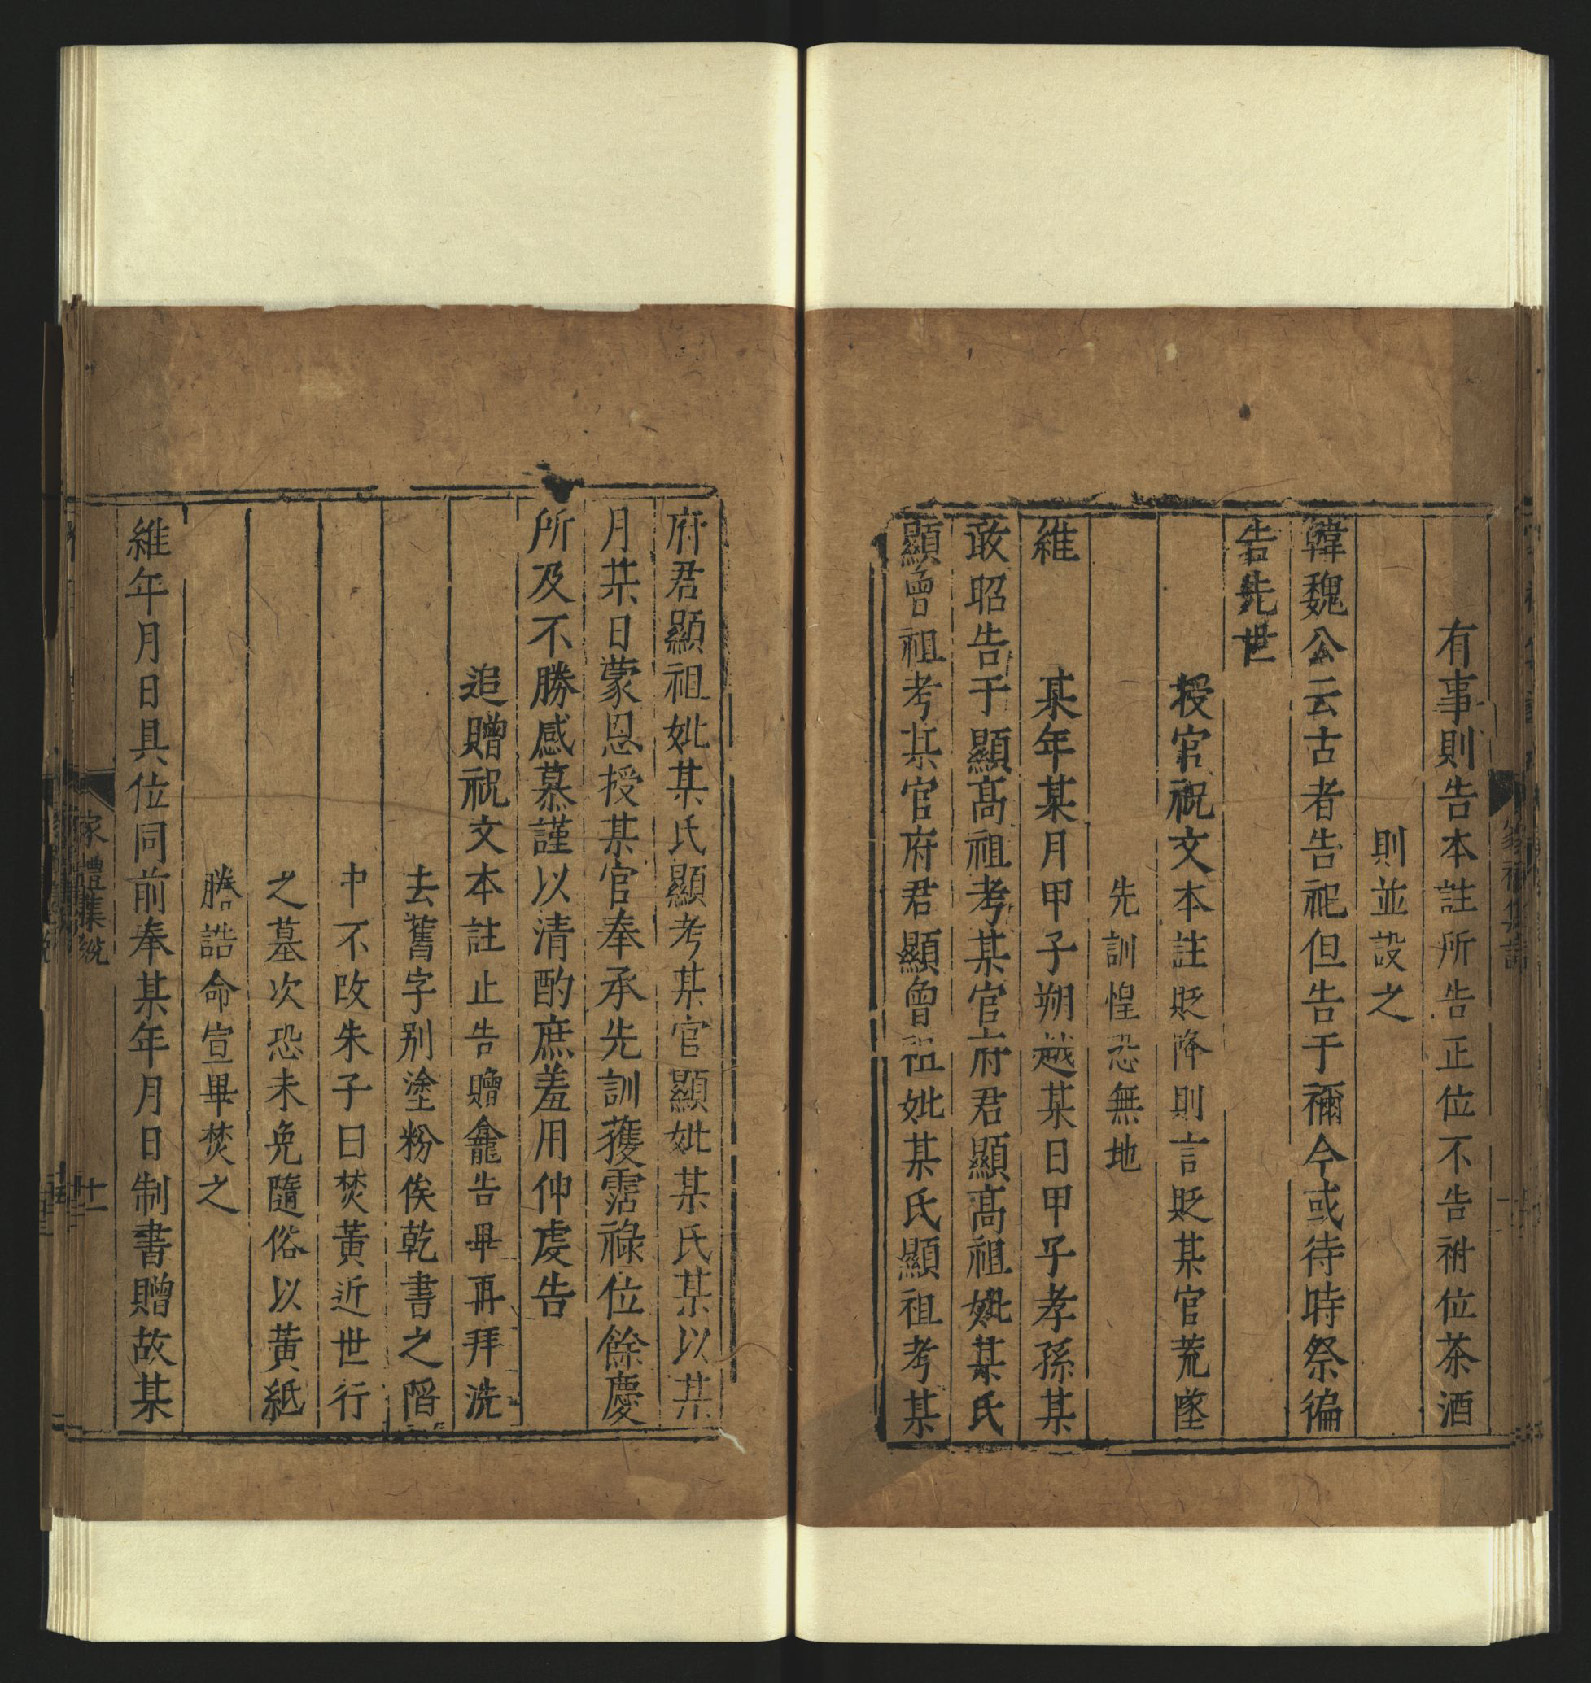 有事則告本註所告正位不告祔位茶酒
則並設之
韓魏公云古者告祀但告于禰今或待時祭徧
告先世
授官祝文本註貶降則言貶某官荒墜
先訓惶恐無地
維　某年某月甲子朔越某日甲子孝孫某
敢昭告于顯髙祖考某官府君顯髙祖妣某氏
顯曾祖考某官府君顯曾祖妣某氏顯祖考某
府君顯祖妣某氏顯考某官顯妣某氏某以某
月某日蒙恩授某官奉承先訓獲霑祿位餘慶
所及不勝感慕謹以清酌庶羞用伸虔告
追贈祝文本註止告贈龕告畢再拜洗
去舊字别塗粉俟乾書之陷
中不改朱子曰焚黃近世行
之墓次恐未免隨俗以黃紙
謄誥命宣畢焚之
維年月日具位同前奉某年月日制書贈故某
家禮集說
十一